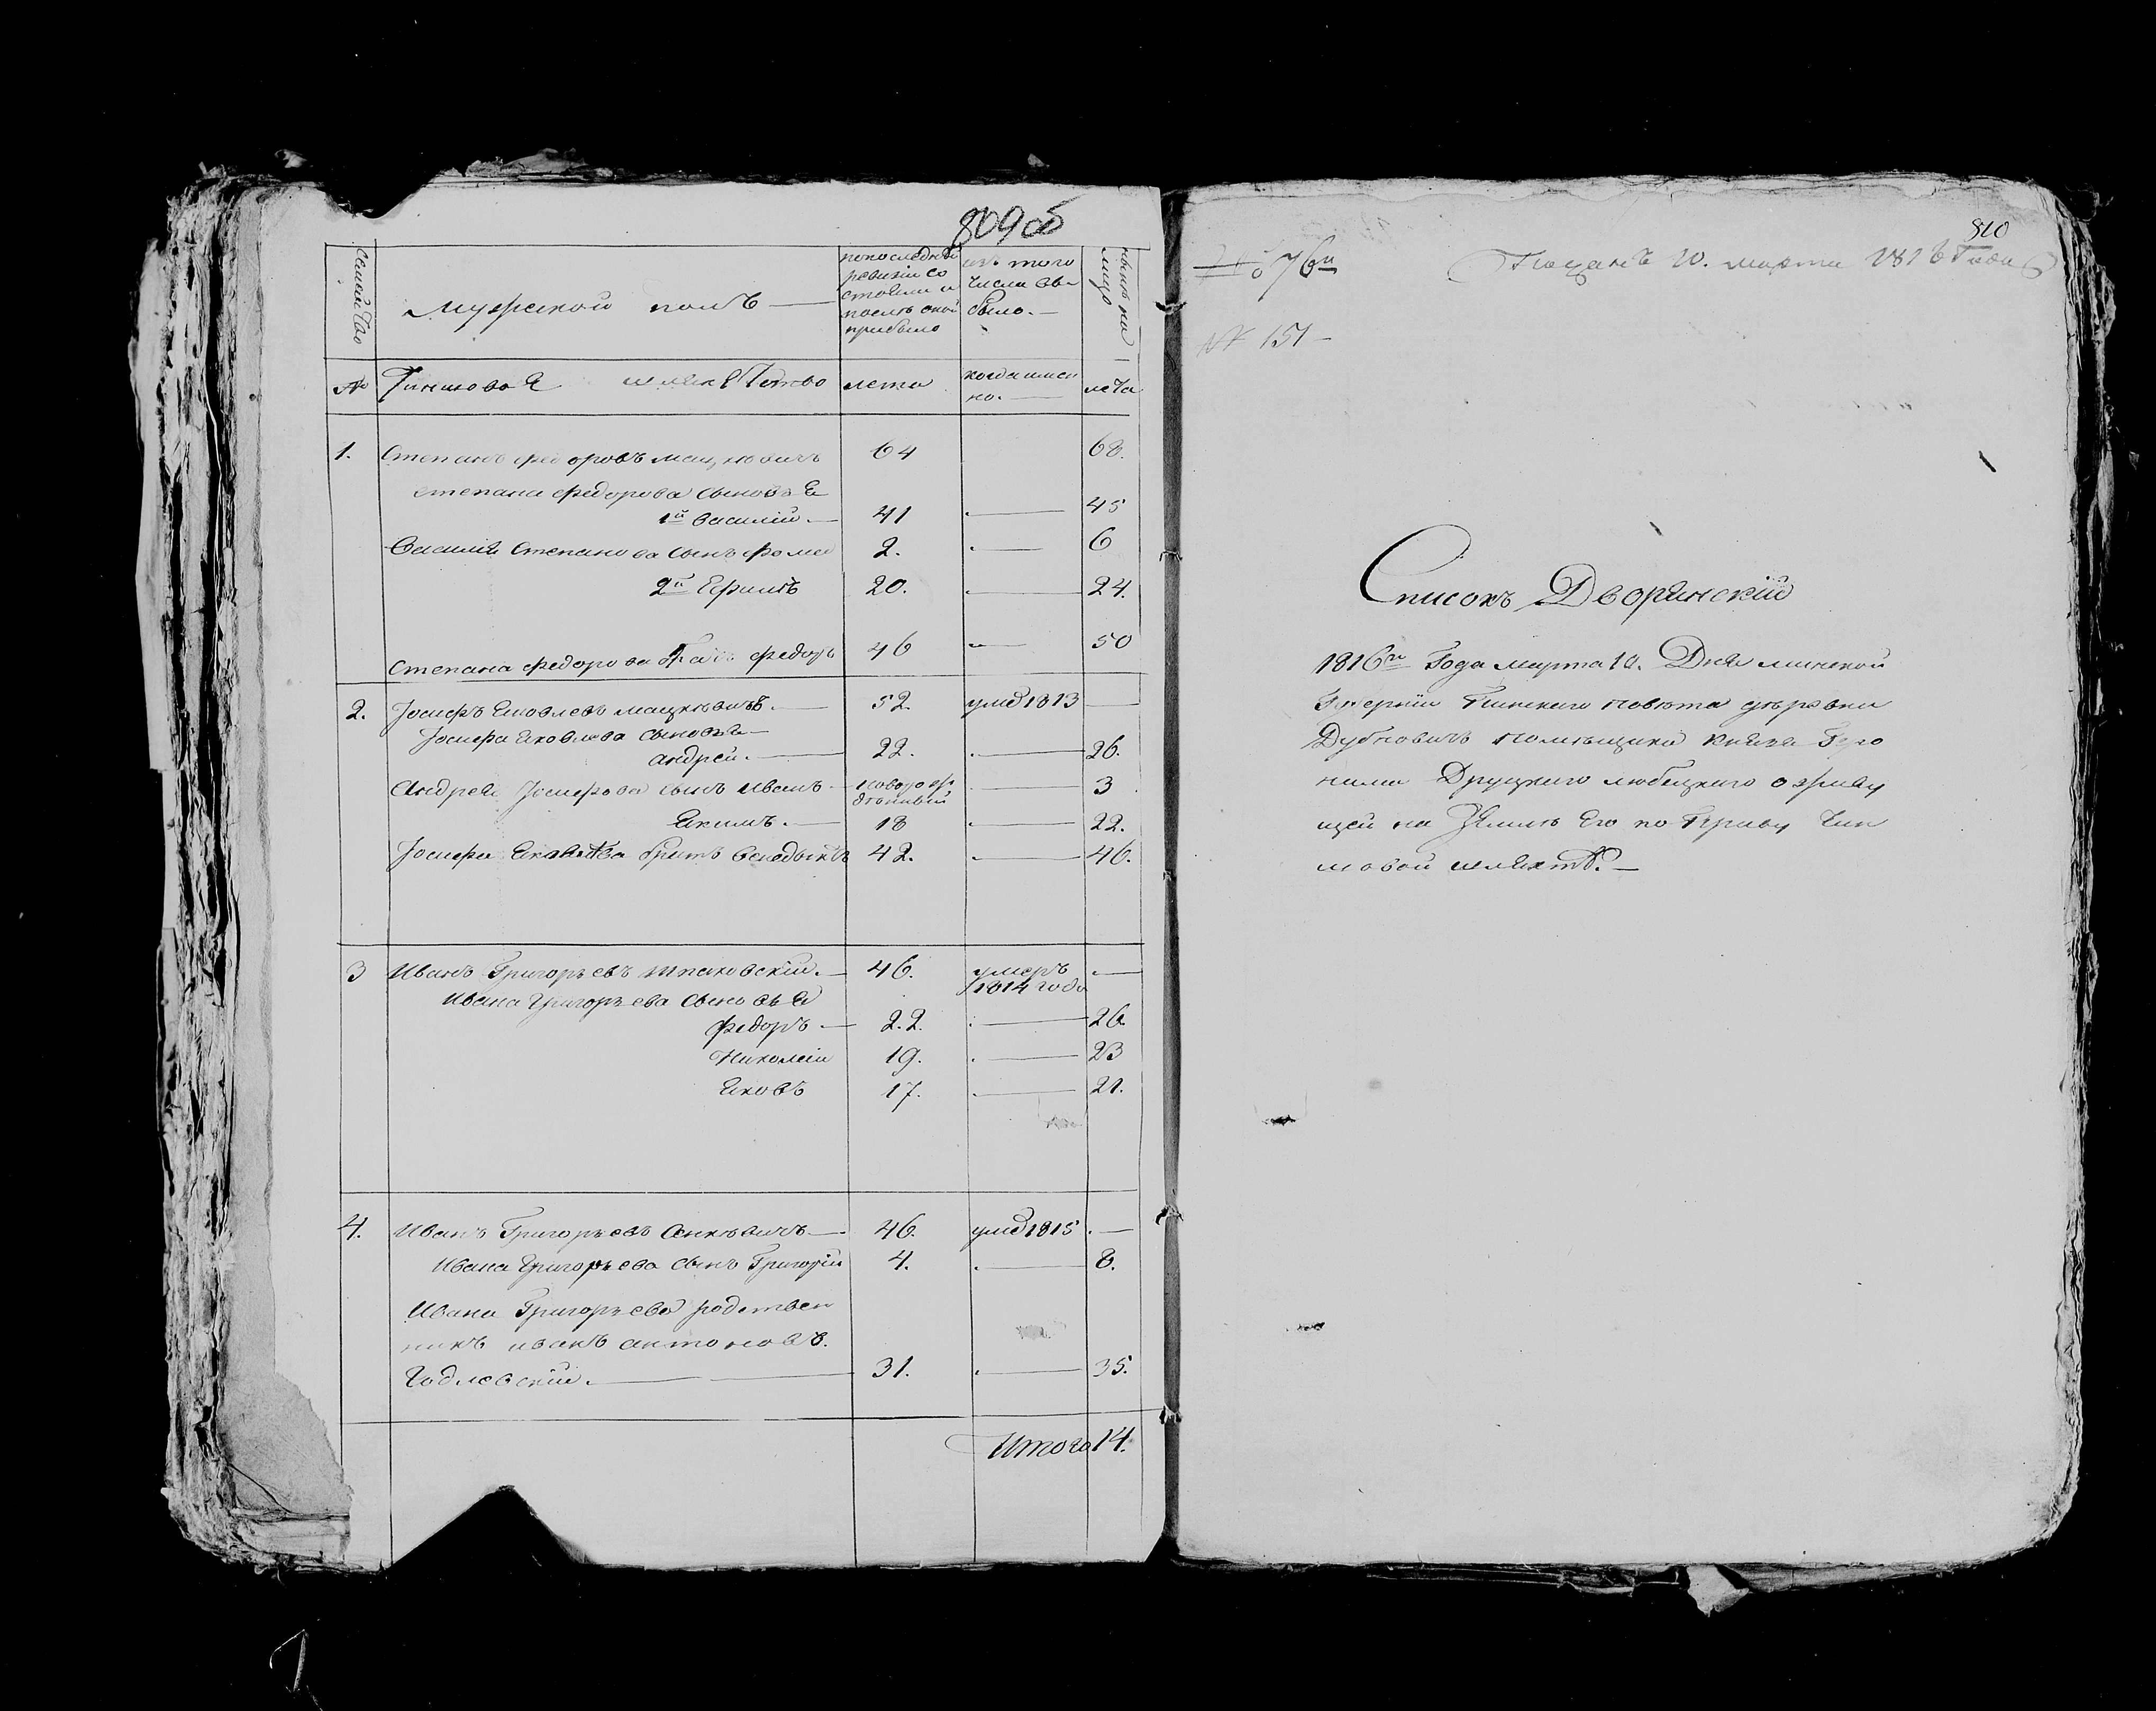 809об
Семей Чис
Мужской полъ
попоследней
ревизiи со
стояли и
после оной
прибыло
изъ того
числа вы
было.
ныне на
лицо
№ Чиншовая шляхетство
лета
когда имен
но.
лета
1. Степанъ Федоровъ Мацкевичъ 64 68.
Степана Федорова сыновья
1й Василiй. 41 45
Василiя Степанова сынъ Фома 2. 6
2й Ефимъ 20. 24.
Степана Федорова братъ Федоръ 46 50
2. Iосифъ Яковлевъ Мацкевичъ. 52. уме 1813
Iосифа Яковлева сыновья
Андрей. 22. 26.
Андрея Iосифова сынъ Иванъ новорож
денный 3
Якимъ. 18 22.
Iосифа Яковлева братъ Бенедыктъ 42. 46.
3 Иванъ Григорьевъ Шпаковскiй. 46. умеръ
1814 года
Ивана Григорьева сыновья
Федоръ 22. 26.
Николай 19. 23
Яковъ 17. 21.
4. Иванъ Григорьевъ Сенкевичъ 46. уме 1815
Ивана Григорьева сынъ Григорiй 4. 8.
Ивана Григорьева родствен
никъ Иванъ Антоновъ.
Годлевскiй. 31. 35.
Итого 14.
810
76й
Поданъ 10. Марта 1816 Года
№ 151
Списокъ Дворянскiй
1816го Года марта 10. Дня Минской
Губернiи Пинского повета деревни
Дубновичъ помещика Князя Геро
нима Друцкого Любецкого о живу
щей на Земле Его по Праву Чин
шовой шляхте.